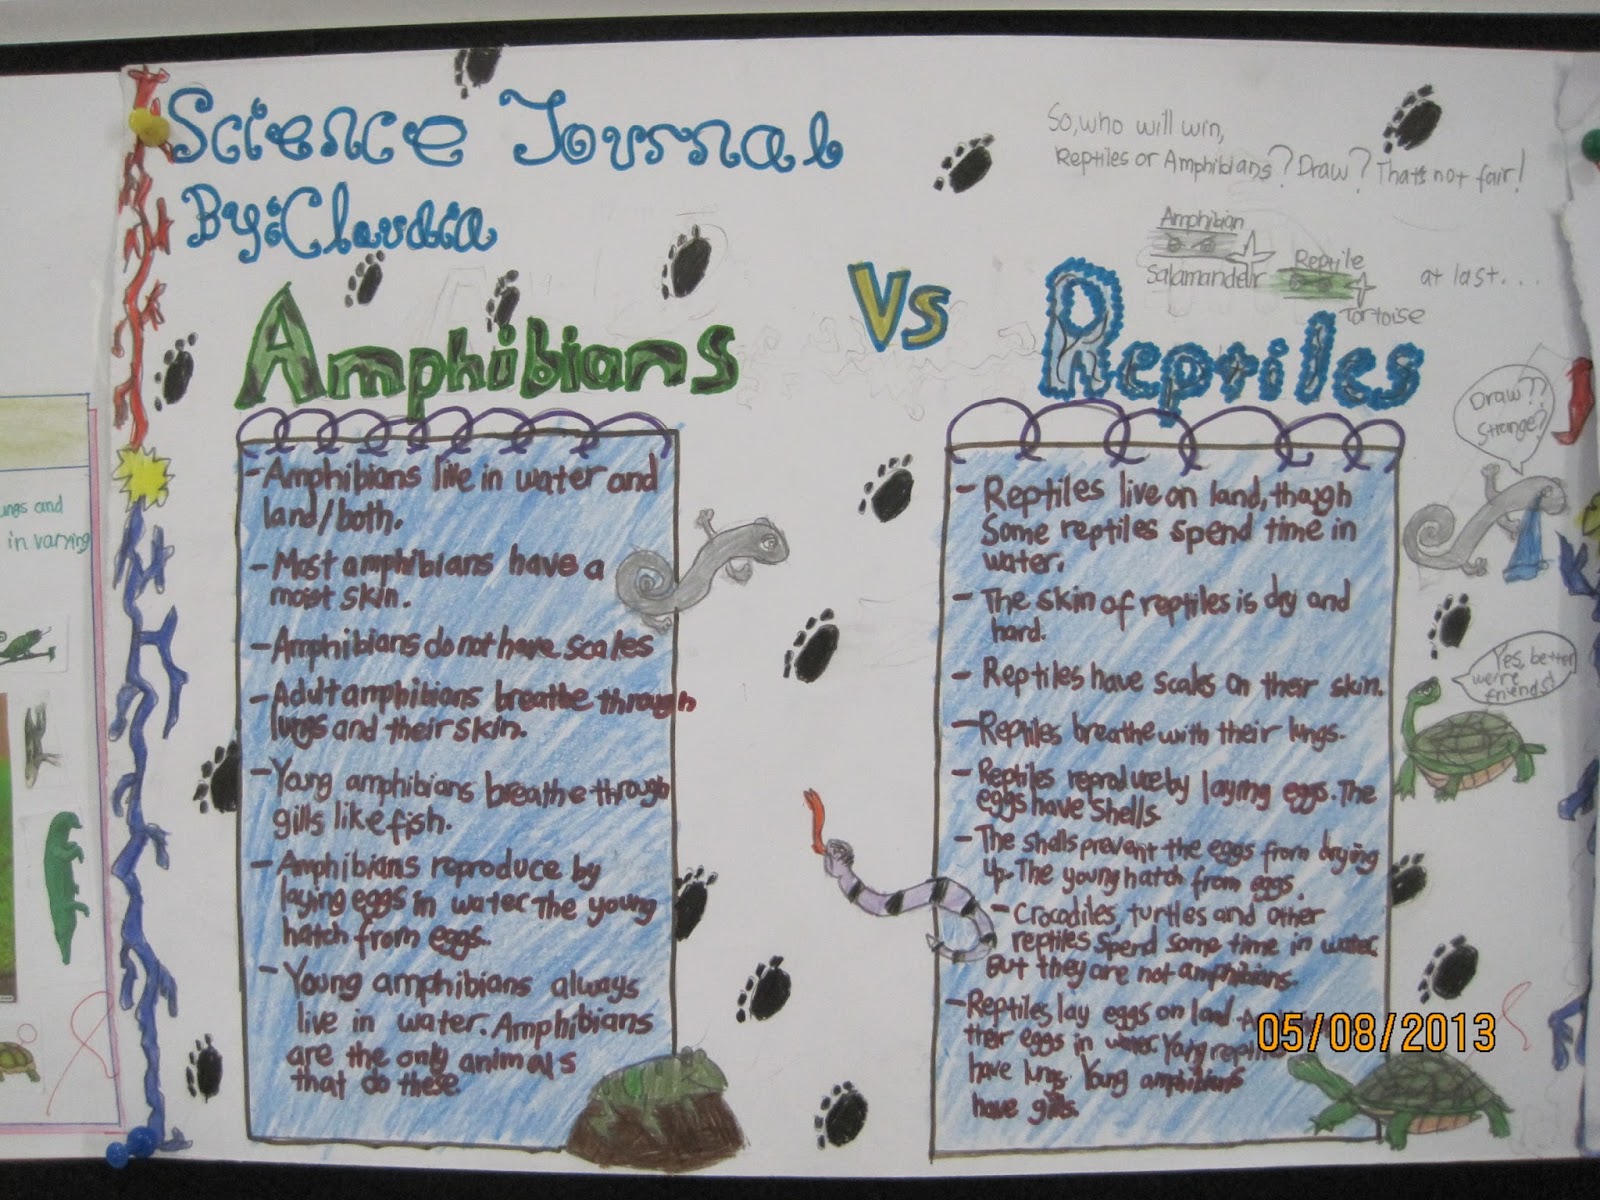 Science Journal
By: Claudia
So, who will win,
Reptiles or Amphibians? Draw? That's not fair!
Amphibian
Salamander
Reptile
Tortoise
at last...
Amphibians
Vs
Reptiles
- Amphibians live in water and
land/both.
- Most amphibians have a
moist skin.
- Amphibians do not have scales
- Adult amphibians breathe through
lungs and their skin.
- Young amphibians breathe through
gills like fish.
- Amphibians reproduce by
laying eggs in water. The young
hatch from eggs.
- Young amphibians always
live in water. Amphibians
are the only animals
that do these.
- Reptiles live on land, though
Some reptiles spend time in
water.
- The skin of reptiles is dry and
hard.
- Reptiles have scales on their skin.
- Reptiles breathe with their lungs.
- Reptiles reproduce by laying eggs. The
eggs have shells.
- The shells prevent the eggs from drying
up. The young hatch from eggs.
- Crocodiles, turtles and other
reptiles spend some time in water.
But they are not amphibians.
- Reptiles lay eggs on land.
their eggs in water. Young
have lungs. Young amphibians
have gills.
Draw??
Strange?
Yes, better
we're
friends!
ungs and
in varying
05/08/2013